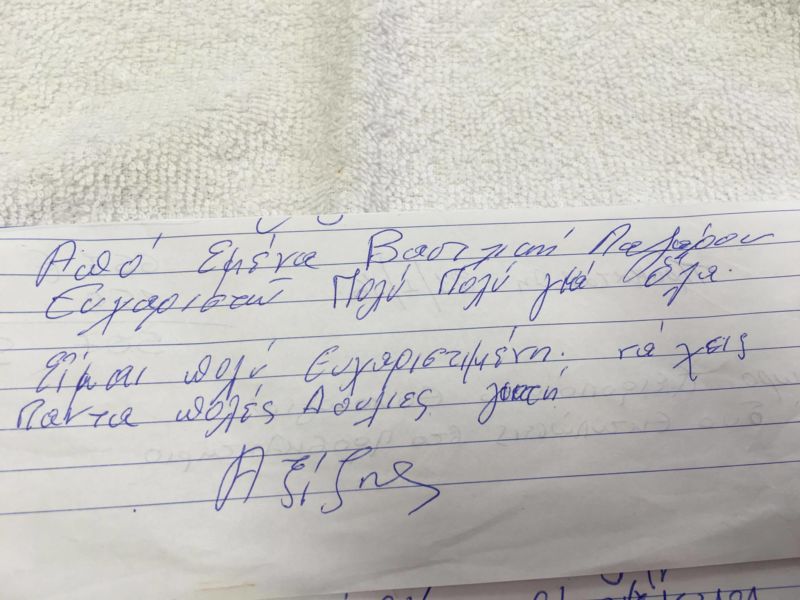 Από Εμένα Βασιλική
Ευχαριστώ Πολύ Πολύ γιά όλα.
Είμαι πολύ Ευχαριστιμένη. νά χεις
Παντα πολές Δουλιες γιατί
Αξίζης